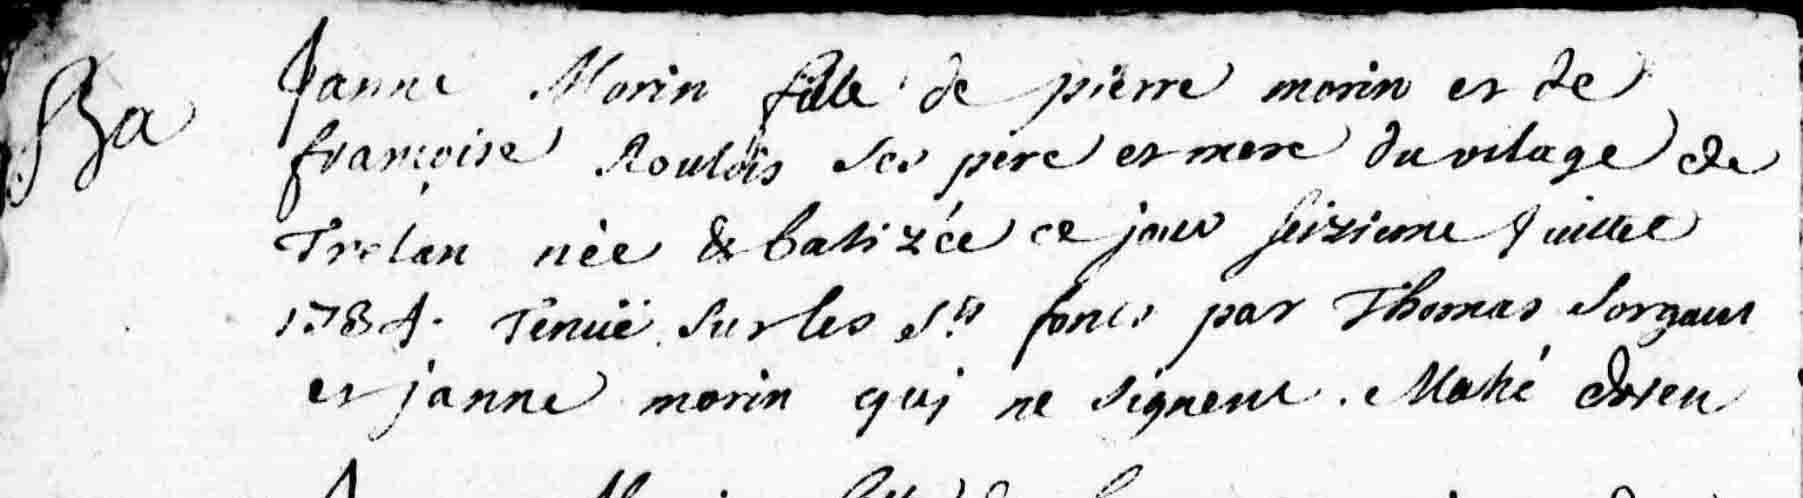 Ba
Janne Morin fille de pierre morin et de
françoise Roulois ses pere et mere du vilage de
Trelan née & batizée ce jour seizieme Juillet
1784. Tenuë sur les Sts fonts par Thomas Sorgaut
et janne morin qui ne signent. Mahé